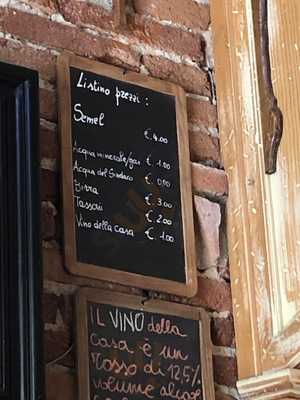 Listino prezzi :
Semel
€. 4.00
Acqua minerale/gas €. 1.00
Acqua del Sindaco €. 0.00
Birra €. 3.00
Tassoni €. 2.00
Vino della casa €. 1.00
IL VINO della
casa è un
rosso di 12,5%
volume